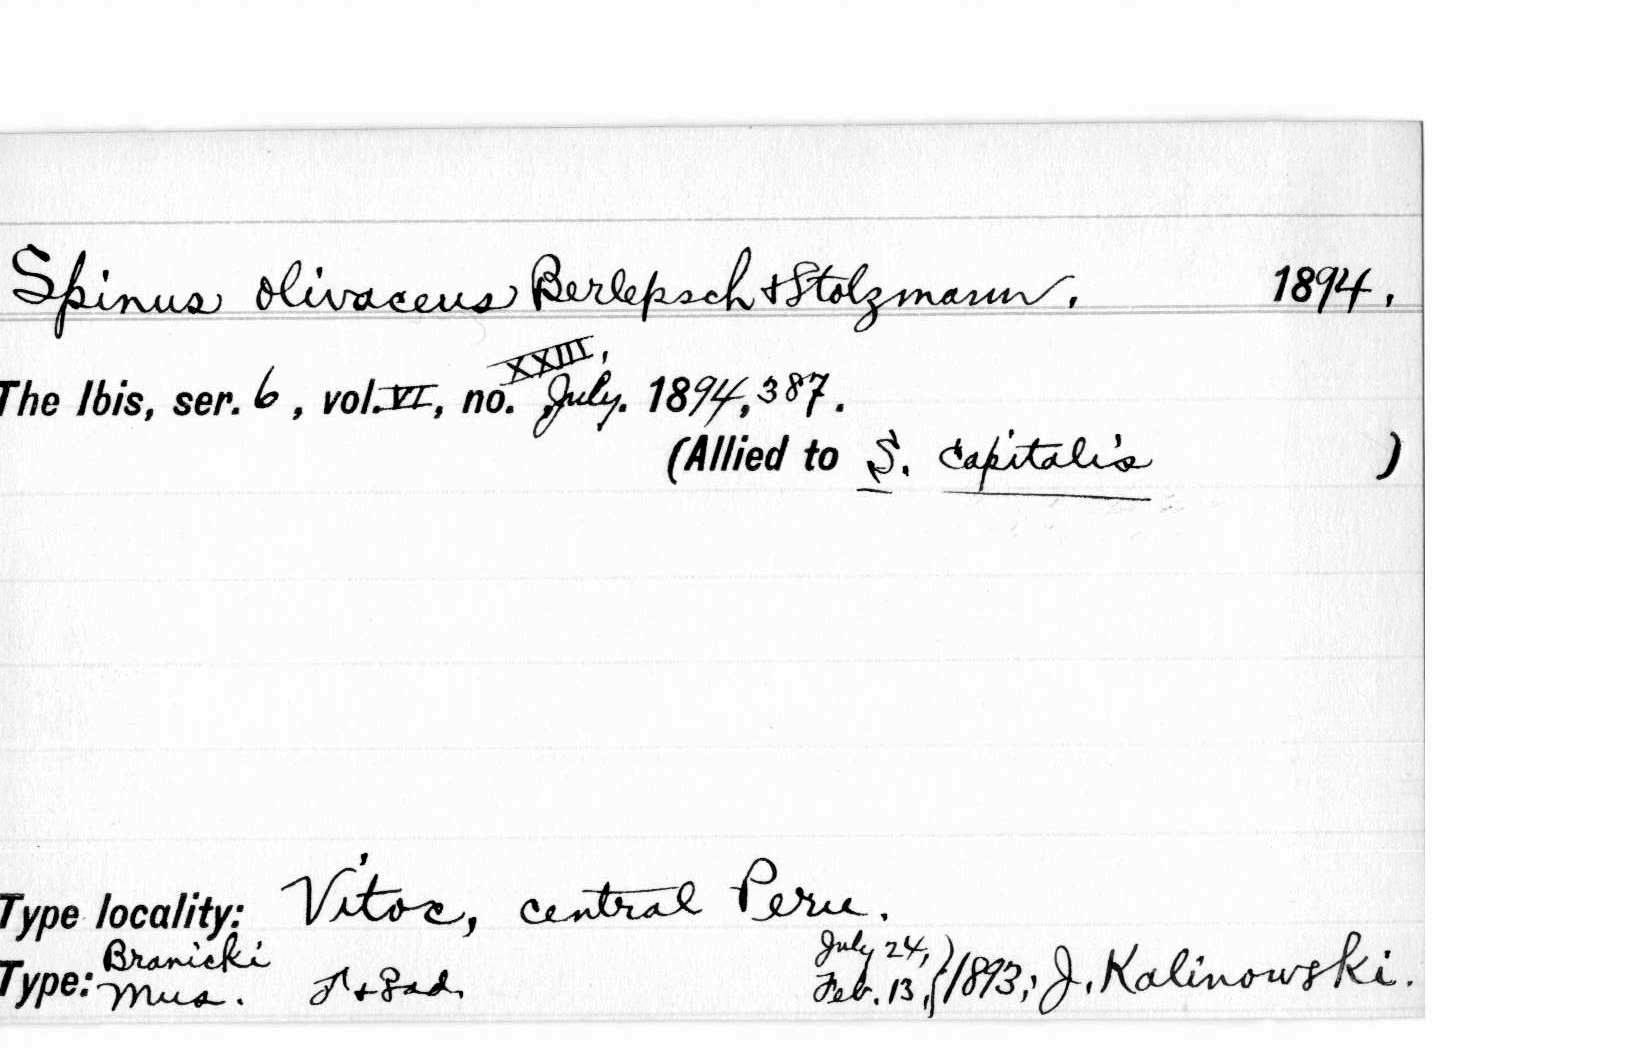 Spinus olivaceus Berlepsch & Stolzmann. 1894.
XXIII,
The Ibis, ser. 6, vol. VI, no. July. 1894, 387.
(Allied to S. capitalis )
Type locality: Vitoc, central Peru.
Type: Branicki Mus. ♂ + ♀ ad. July 24, Feb. 13, } 1893; J. Kalinowski.